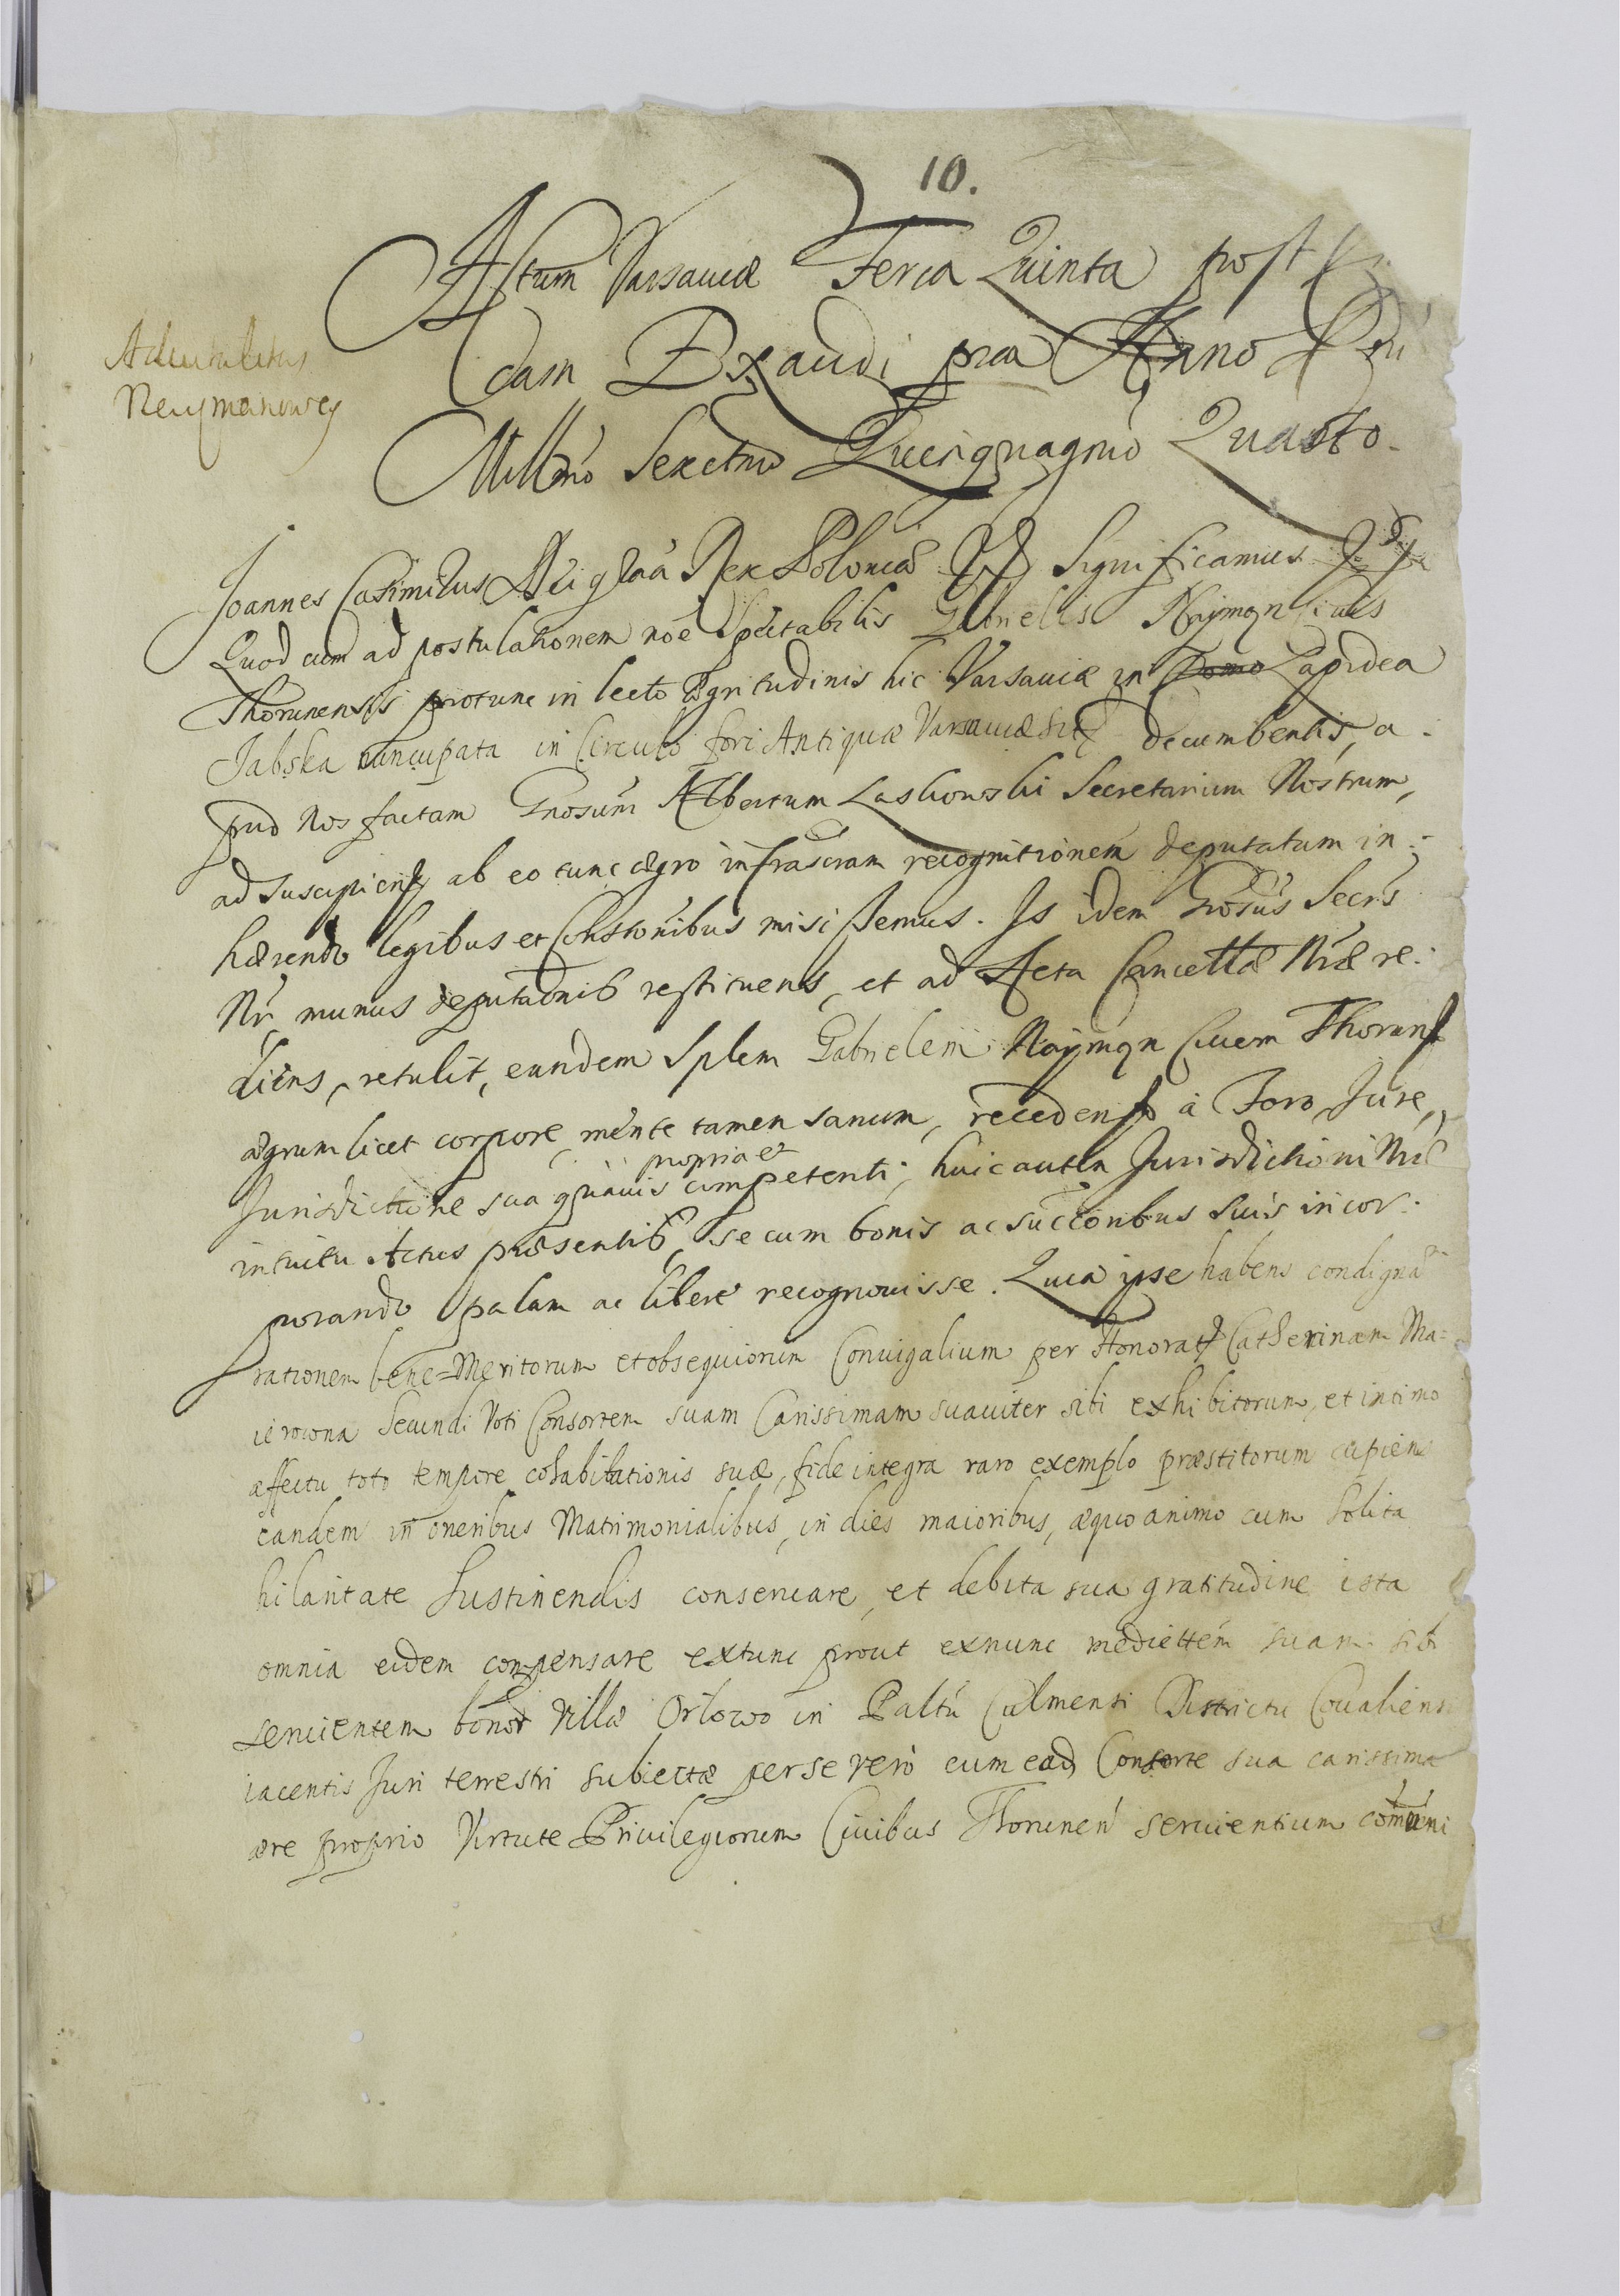 10.
Actum Varsaviæ Feria Quinta post
cam Exaudi pxa Anno Dni
Millmo Sexctmo Quinqnagmo Quarto.
Advitalitas
Neymanowey
Joannes Casimirus Dei graa Rex Poloniæ Significamus
Quod cum ad postulationem noe Spectabilis Gabrielis Naymqn Civis
Thorunensis protunc in lecto Ægritudinis hic Varsaviæ in Domo Lapidea
Jabska nuncupata in Circulo fori Antiquæ Varsaviæ sitæ decumbentis, a-
pud Nos factam Gnosum Albertum Laskowski Secretarium Nostrum,
ad suscipiend ab eo tunc ægro infrascram recognitionem deputatum in-
hærendo legibus et Constonibus misissemus. Is idem Gnosus Secrs
Nr munus deputaonis restituens, et ad Acta Cancellæ Nræ re-
diens, retulit, eundem Splem Gabrielem Naymqn Civem Thorunen
ægrum licet corpore, mente tamen sanum, recedendo à Foro, Jure,
propria et
Jurisdictione sua quavis competenti; huic autem Jurisdictioni Nræ
intuitu Actus præsentis, se cum bonis ac succcoribus suis incor-
porando palam ac libere recognovisse. Quia ipse habens condignã
rationem bene-Meritorum et obsequiorum Conuigalium per Honorat Catherinam Ma-
ierowna Secundi Voti Consortem suam Carissimam suaviter sibi exhibitorum, et intimo
affectu toto tempore cohabitationis suæ, fide integra raro exemplo præstitorum cupiens
eandem in oneribus Matrimonialibus, in dies maioribus, æquo animo cum solita
hilaritate Sustinendis conservare, et debita sua gratitudine ista
omnia eidem compensare extunc prout exnunc mediettem suam sibi
servientem bonor Villæ Orlowo in Paltu Culmensi Districtu Covaliensi
iacentis Juri terrestri subiectæ per se vero cum ead Consorte sua carissima
ære proprio Virtute Privilegiorum Civibus Thorunen servientium comuni